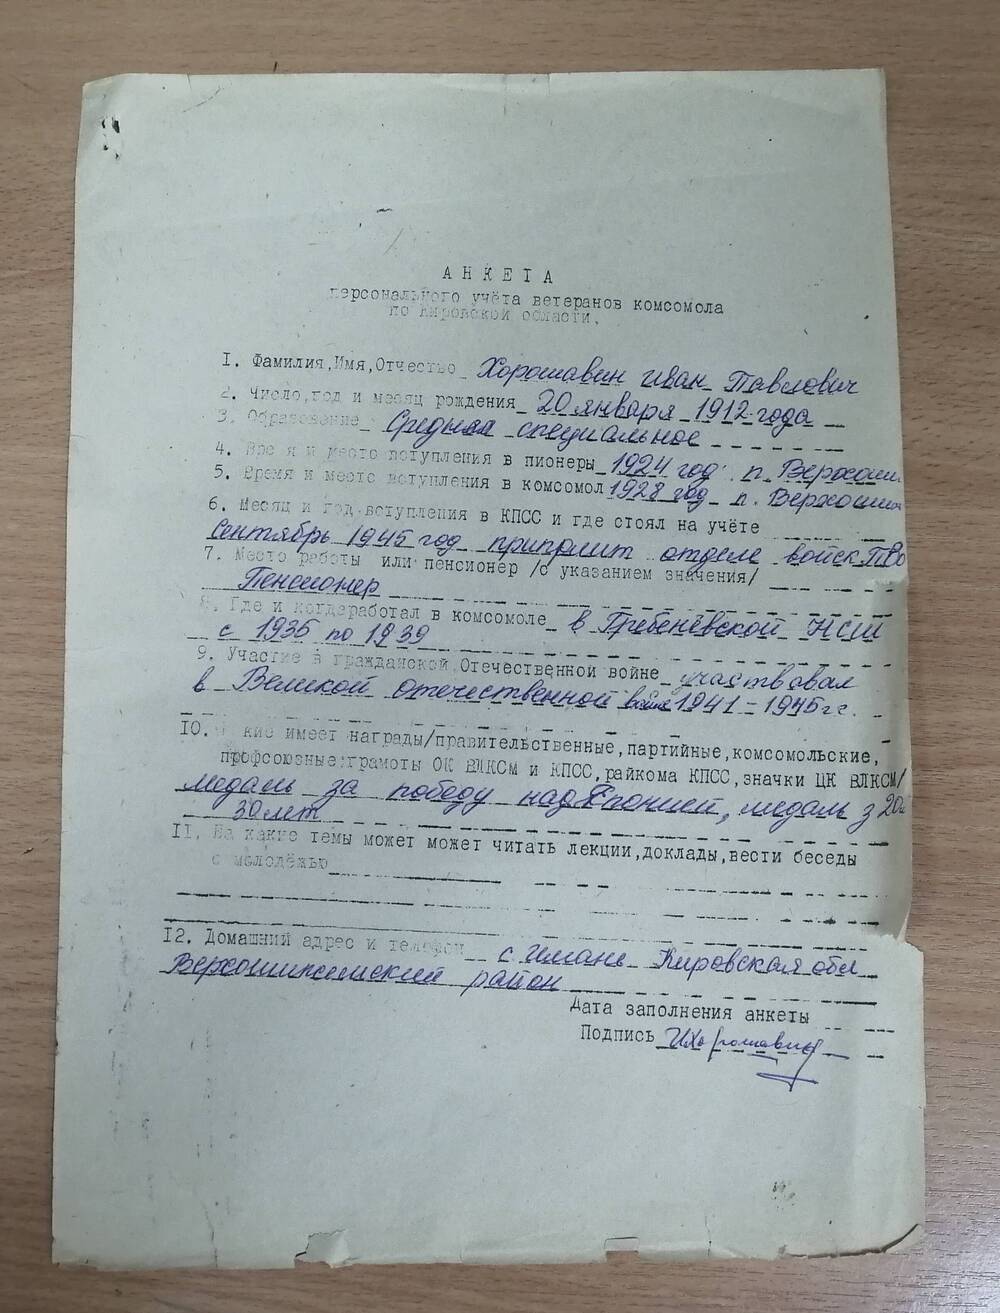 АНКЕТА
персонального учёта ветеранов комсомола
по Кировской области.
1. Фамилия,Имя,Отчество Хорошавин Иван Павлович
2. Число,год и месяц рождения 20 января 1912 года
3. Образование Средная специальное
4. Время и место вступления в пионеры 1924 год. п. Верхоши
5. Время и место вступления в комсомол 1928 год п. Верхошиж
6. Месяц и год вступления в КПСС и где стоял на учёте
Сентябрь 1945 год при отделе войск
7. Место работы или пенсионер /с указанием значения/
Пенсионер
8. Где и когда работал в комсомоле в Гребенёвской НСШ
с 1935 по 1939
9. Участие в гражданской Отечественной войне участвовал
в Великой отечественной войне 1941-1945 г г.
10. кие имеет награды/правительственные,партийные,комсомольские,
профсоюзные:грамоты ОК ВЛКСМ и КПСС,райкома КПСС,значки ЦК ВЛКСМ/
Медаль за победу над Японией, медаль з 20и
30 лет
11. На какие темы может может читать лекции,доклады,вести беседы
с молодёжью
12. Домашний адрес и телефон с. Кировская обл
Верхошижемский район
Дата заполнения анкеты
Подпись ИХорошавин